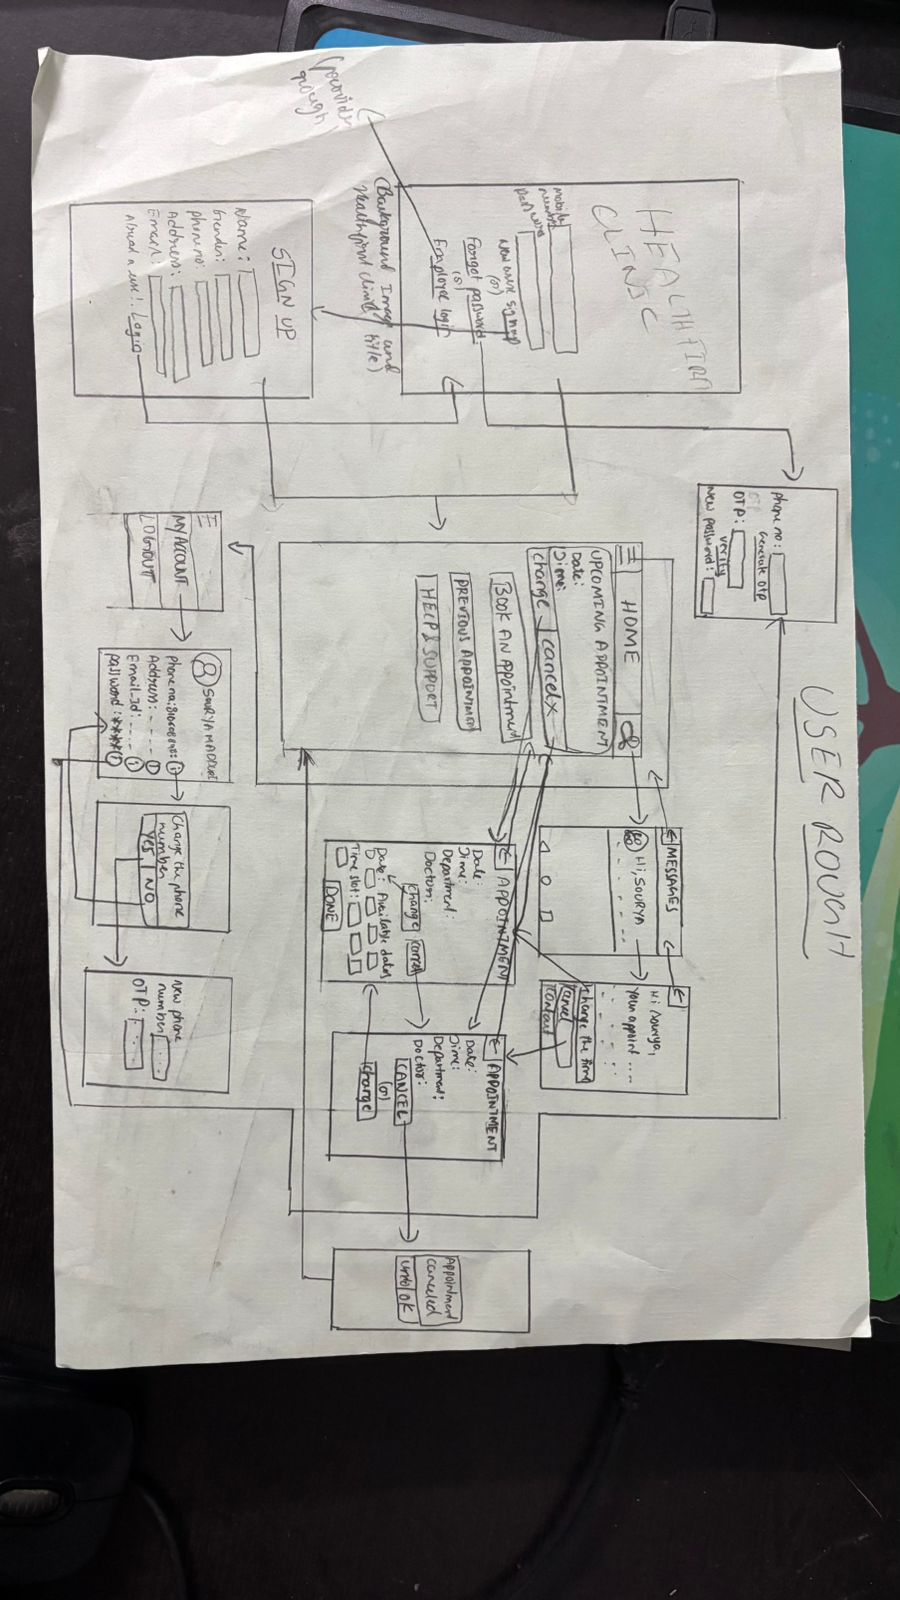 USER ROUGH
HEALTHFIRST
CLINIC
Mobile
number
password
New user signup
(or)
Forgot password
(or)
Employee login
(Background Image and
Healthfirst clinic title)
(provider
rough)
SIGN UP
Name:
Gender:
Phone no:
Address:
Email:
Login
Phone no:
Generate OTP
OTP:
verify
New password:
HOME
UPCOMING APPOINTMENT
Date:
Time:
change
cancel x
BOOK AN APPOINTMENT
PREVIOUS APPOINTMENT
HELP & SUPPORT
MY ACCOUNT
LOGOUT
Phone no:
Address: - - - -
Email_Id: - - - -
password: ****
Change the phone
number
YES
NO
New phone
number
OTP:
MESSAGES
Hi, SOURYA
Hi Sourya,
Your appoint ....
change the
cancel
contact
APPOINTMENT
Date:
Time:
Department:
Doctor:
change
cancel
Date: Available dates
Time slot:
DONE
APPOINTMENT
Date:
Time:
Department:
Doctor:
CANCEL
(or)
change
Appointment
canceled
undo
OK